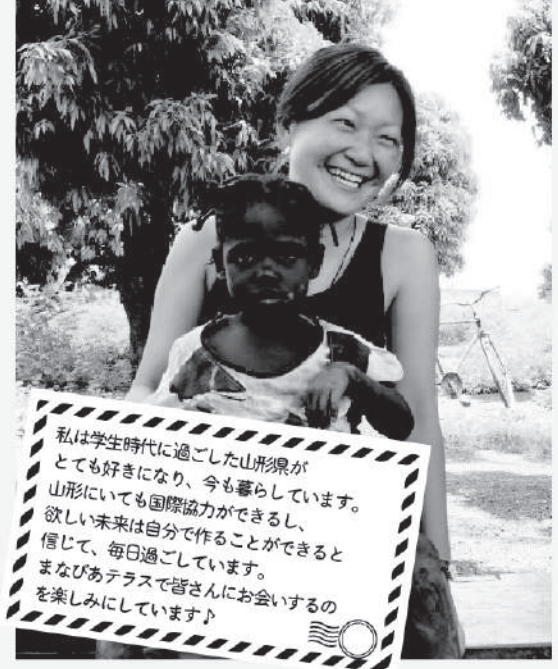 私は学生時代に過ごした山形県が
とても好きになり、今も暮らしています。
山形にいても国際協力ができるし、
欲しい未来は自分で作ることができると
信じて、毎日過ごしています。
まなびあテラスで皆さんにお会いするの
を楽しみにしています♪